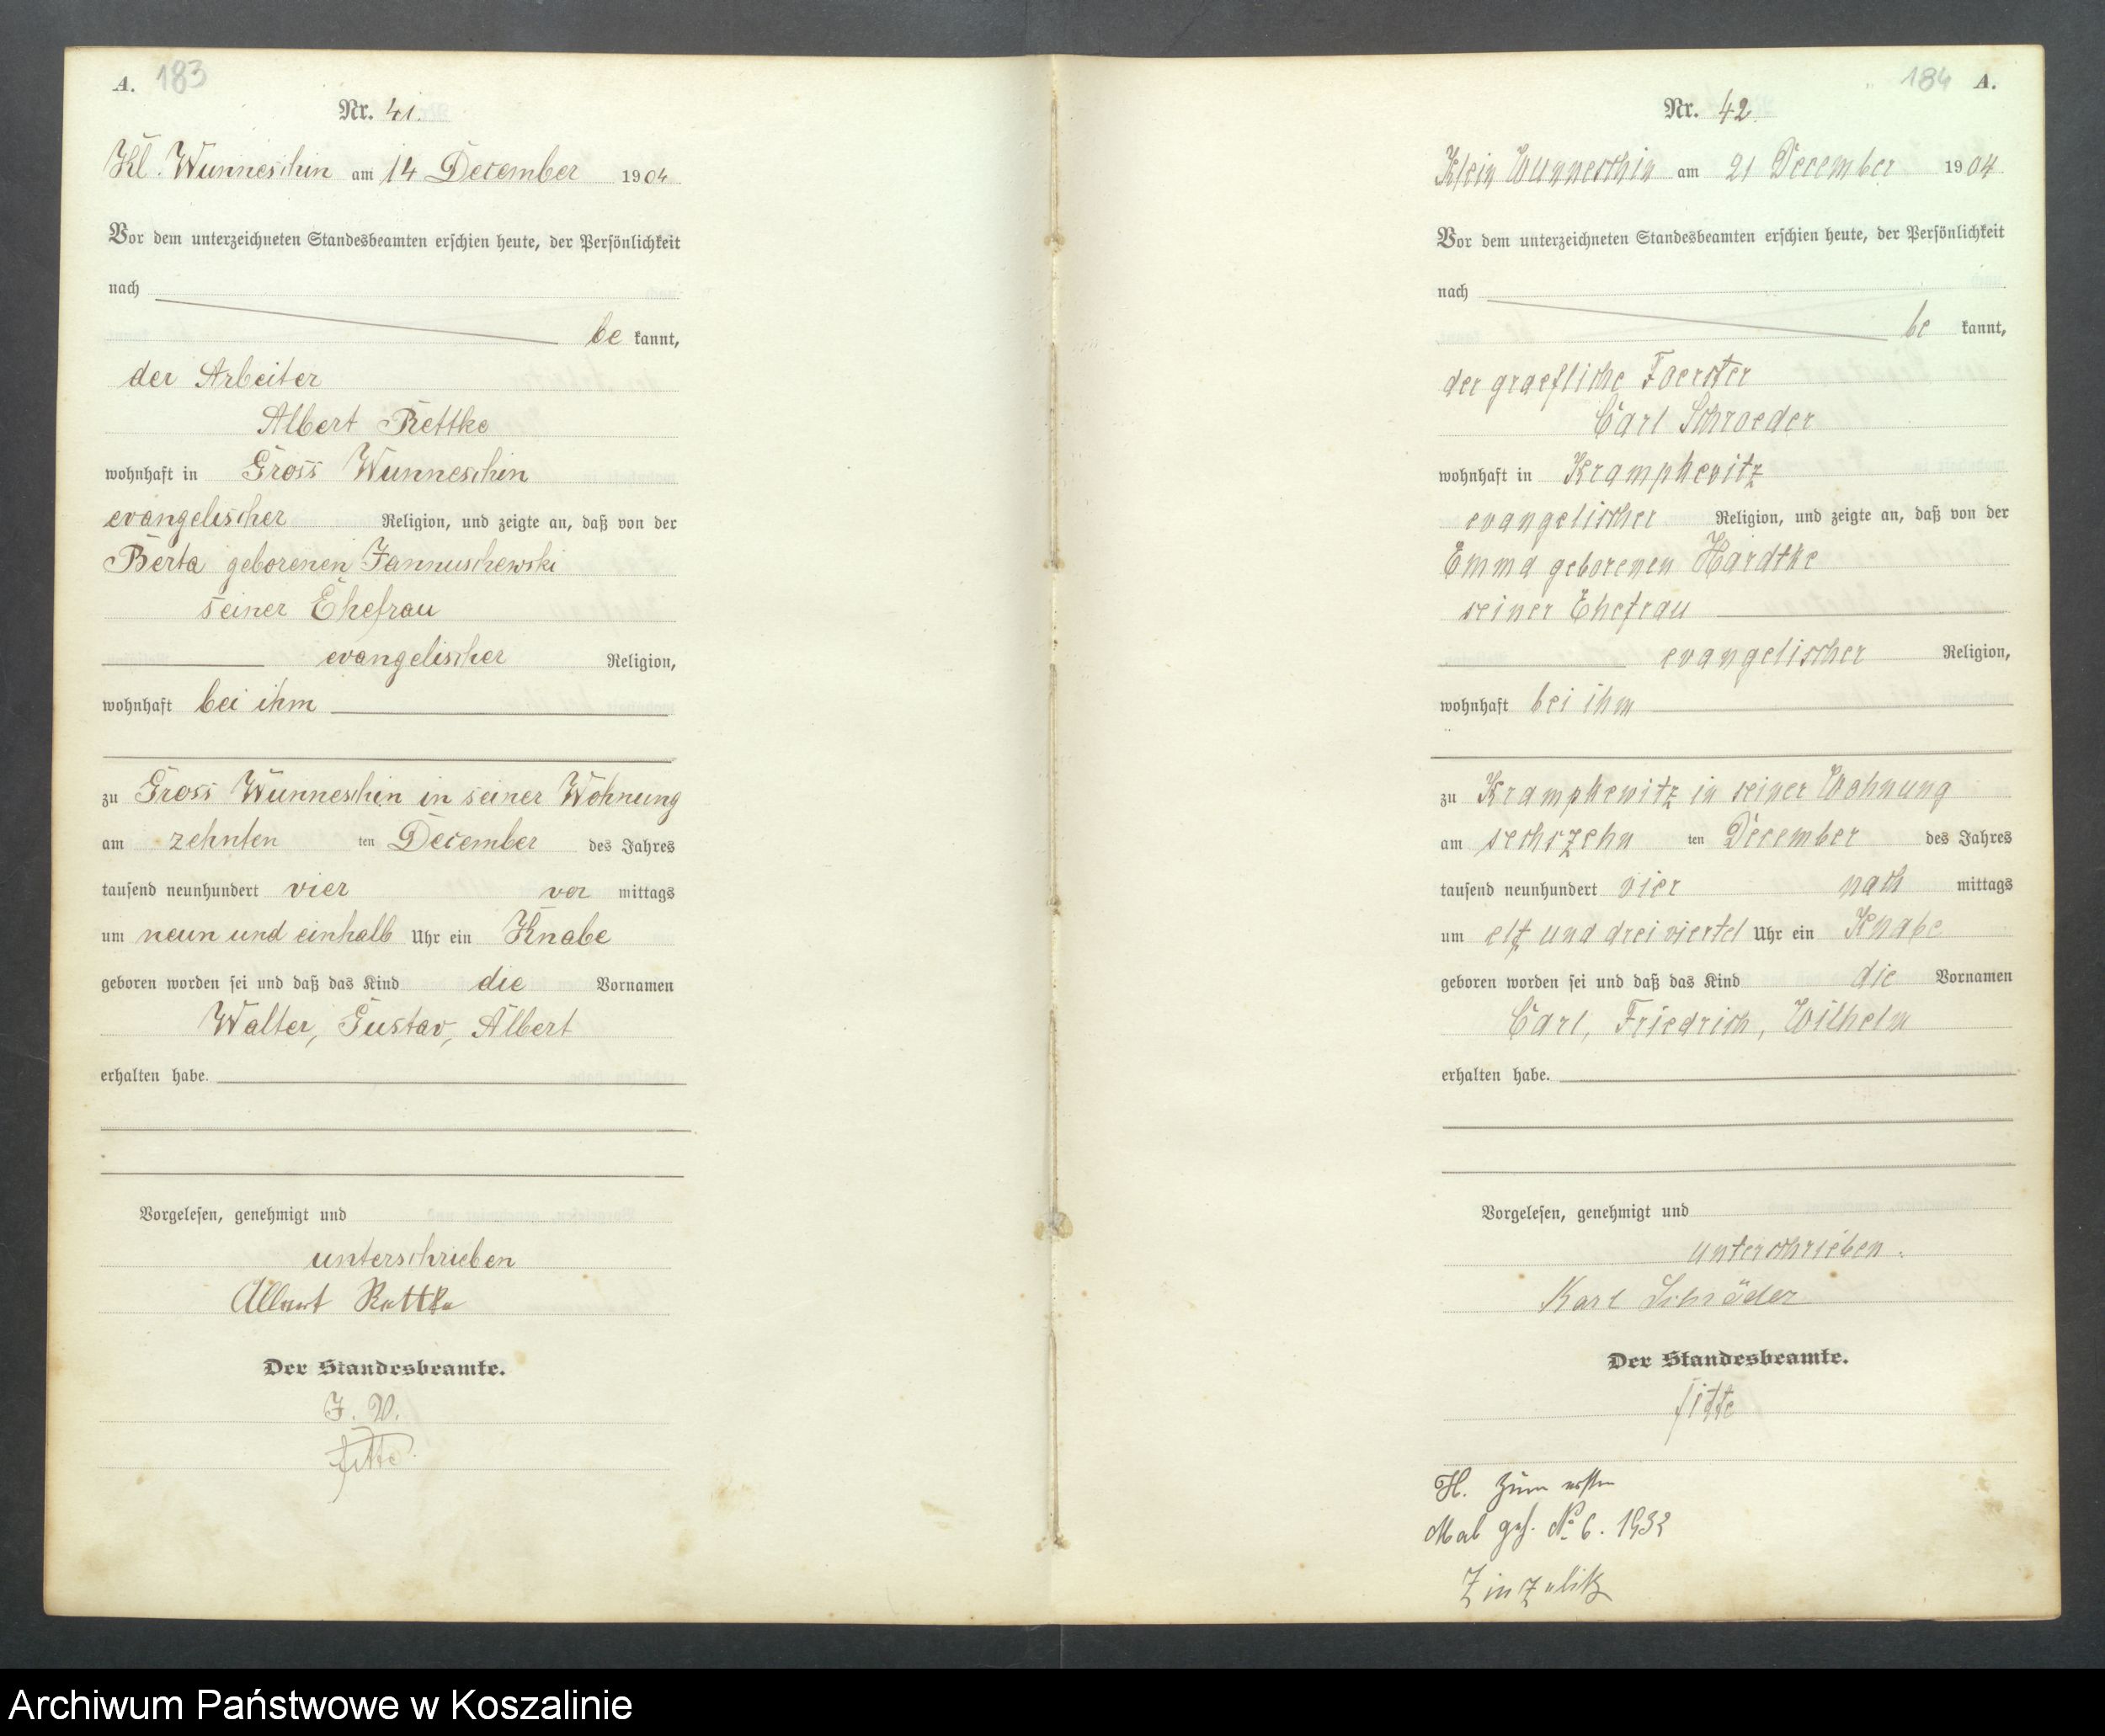 A. 183
Nr. 41.
Kl. Wunneschin am 14 December 1904
Vor dem unterzeichneten Standesbeamten erschien heute, der Persönlichkeit
nach
be kannt,
der Arbeiter
Albert Rettke
wohnhaft in Gross Wunneschin
evangelischer Religion, und zeigte an, daß von der
Berta geborenen Jannuschewski
seiner Ehefrau
evangelischer Religion,
wohnhaft bei ihm
zu Gross Wunneschin in seiner Wohnung
am zehnten ten December des Jahres
tausend neunhundert vier vor mittags
um neun und einhalb Uhr ein Knabe
geboren worden sei und daß das Kind die Vornamen
Walter, Gustav, Albert
erhalten habe.
Vorgelesen, genehmigt und
unterschrieben
Albert Rettke
Der Standesbeamte.
J. V.
Fitte.
184 A.
Nr. 42
Klein Wunneschin am 21 December 1904
Vor dem unterzeichneten Standesbeamten erschien heute, der Persönlichkeit
nach
be kannt,
der graefliche Foerster
Carl Schroeder
wohnhaft in Krampkewitz
evangelischer Religion, und zeigte an, daß von der
Emma geborenen Hardtke
seiner Ehefrau
evangelischer Religion,
wohnhaft bei ihm
zu Krampkewitz in seiner Wohnung
am sechszehn ten December des Jahres
tausend neunhundert vier nach mittags
um elf und dreiviertel Uhr ein Knabe
geboren worden sei und daß das Kind die Vornamen
Carl, Friedrich, Wilhelm
erhalten habe.
Vorgelesen, genehmigt und
unterschrieben.
Karl Schröder
Der Standesbeamte.
Fitte
H. Zum ersten
Mal geh. No 6. 1932
Zinzelitz
Archiwum Państwowe w Koszalinie